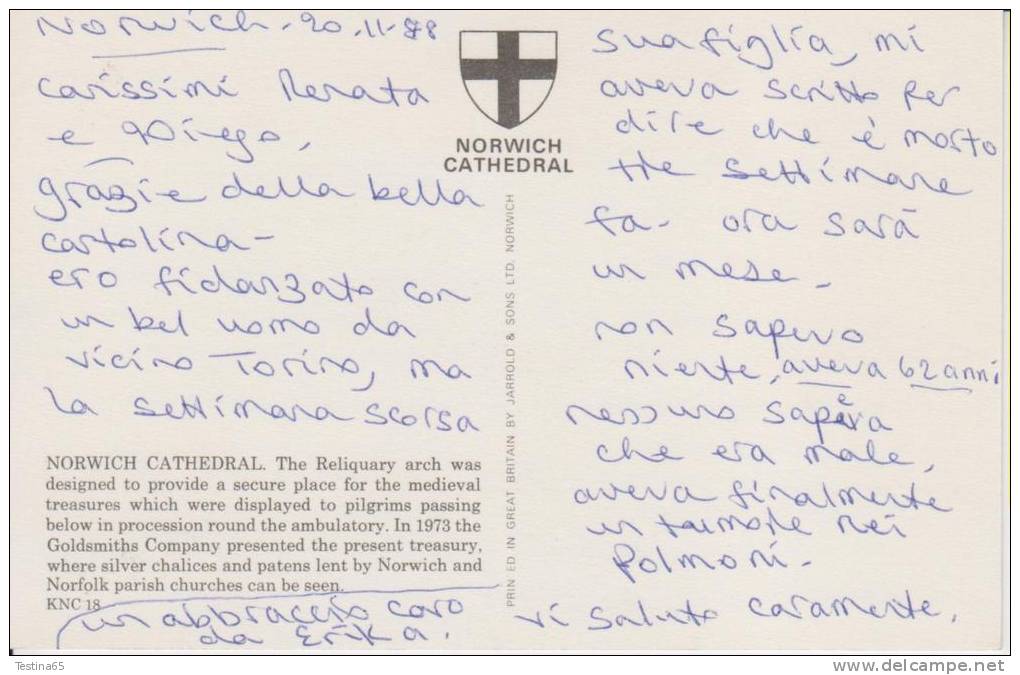 Norwich - 20.11.88
carissimi Renata
e Diego,
grazie della bella
cartolina -
ero fidanzato con
un bel uomo da
vicino Torino, ma
la settimana scorsa
NORWICH CATHEDRAL. The Reliquary arch was
designed to provide a secure place for the medieval
treasures which were displayed to pilgrims passing
below in procession round the ambulatory. In 1973 the
Goldsmiths Company presented the present treasury,
where silver chalices and patens lent by Norwich and
Norfolk parish churches can be seen.
KNC 18
un abbraccio caro
da Erika.
NORWICH
CATHEDRAL
PRINTED IN GREAT BRITAIN BY JARROLD & SONS LTD. NORWICH
sua figlia, mi
aveva scritto per
dire che è morto
tre settimane
fa - ora sarà
un mese -
non sapevo
niente, aveva 62 anni
nessuno sapeva
che era male,
aveva finalmente
un tumore nei
polmoni -
vi saluto caramente,
Testina65
www.delcampe.net